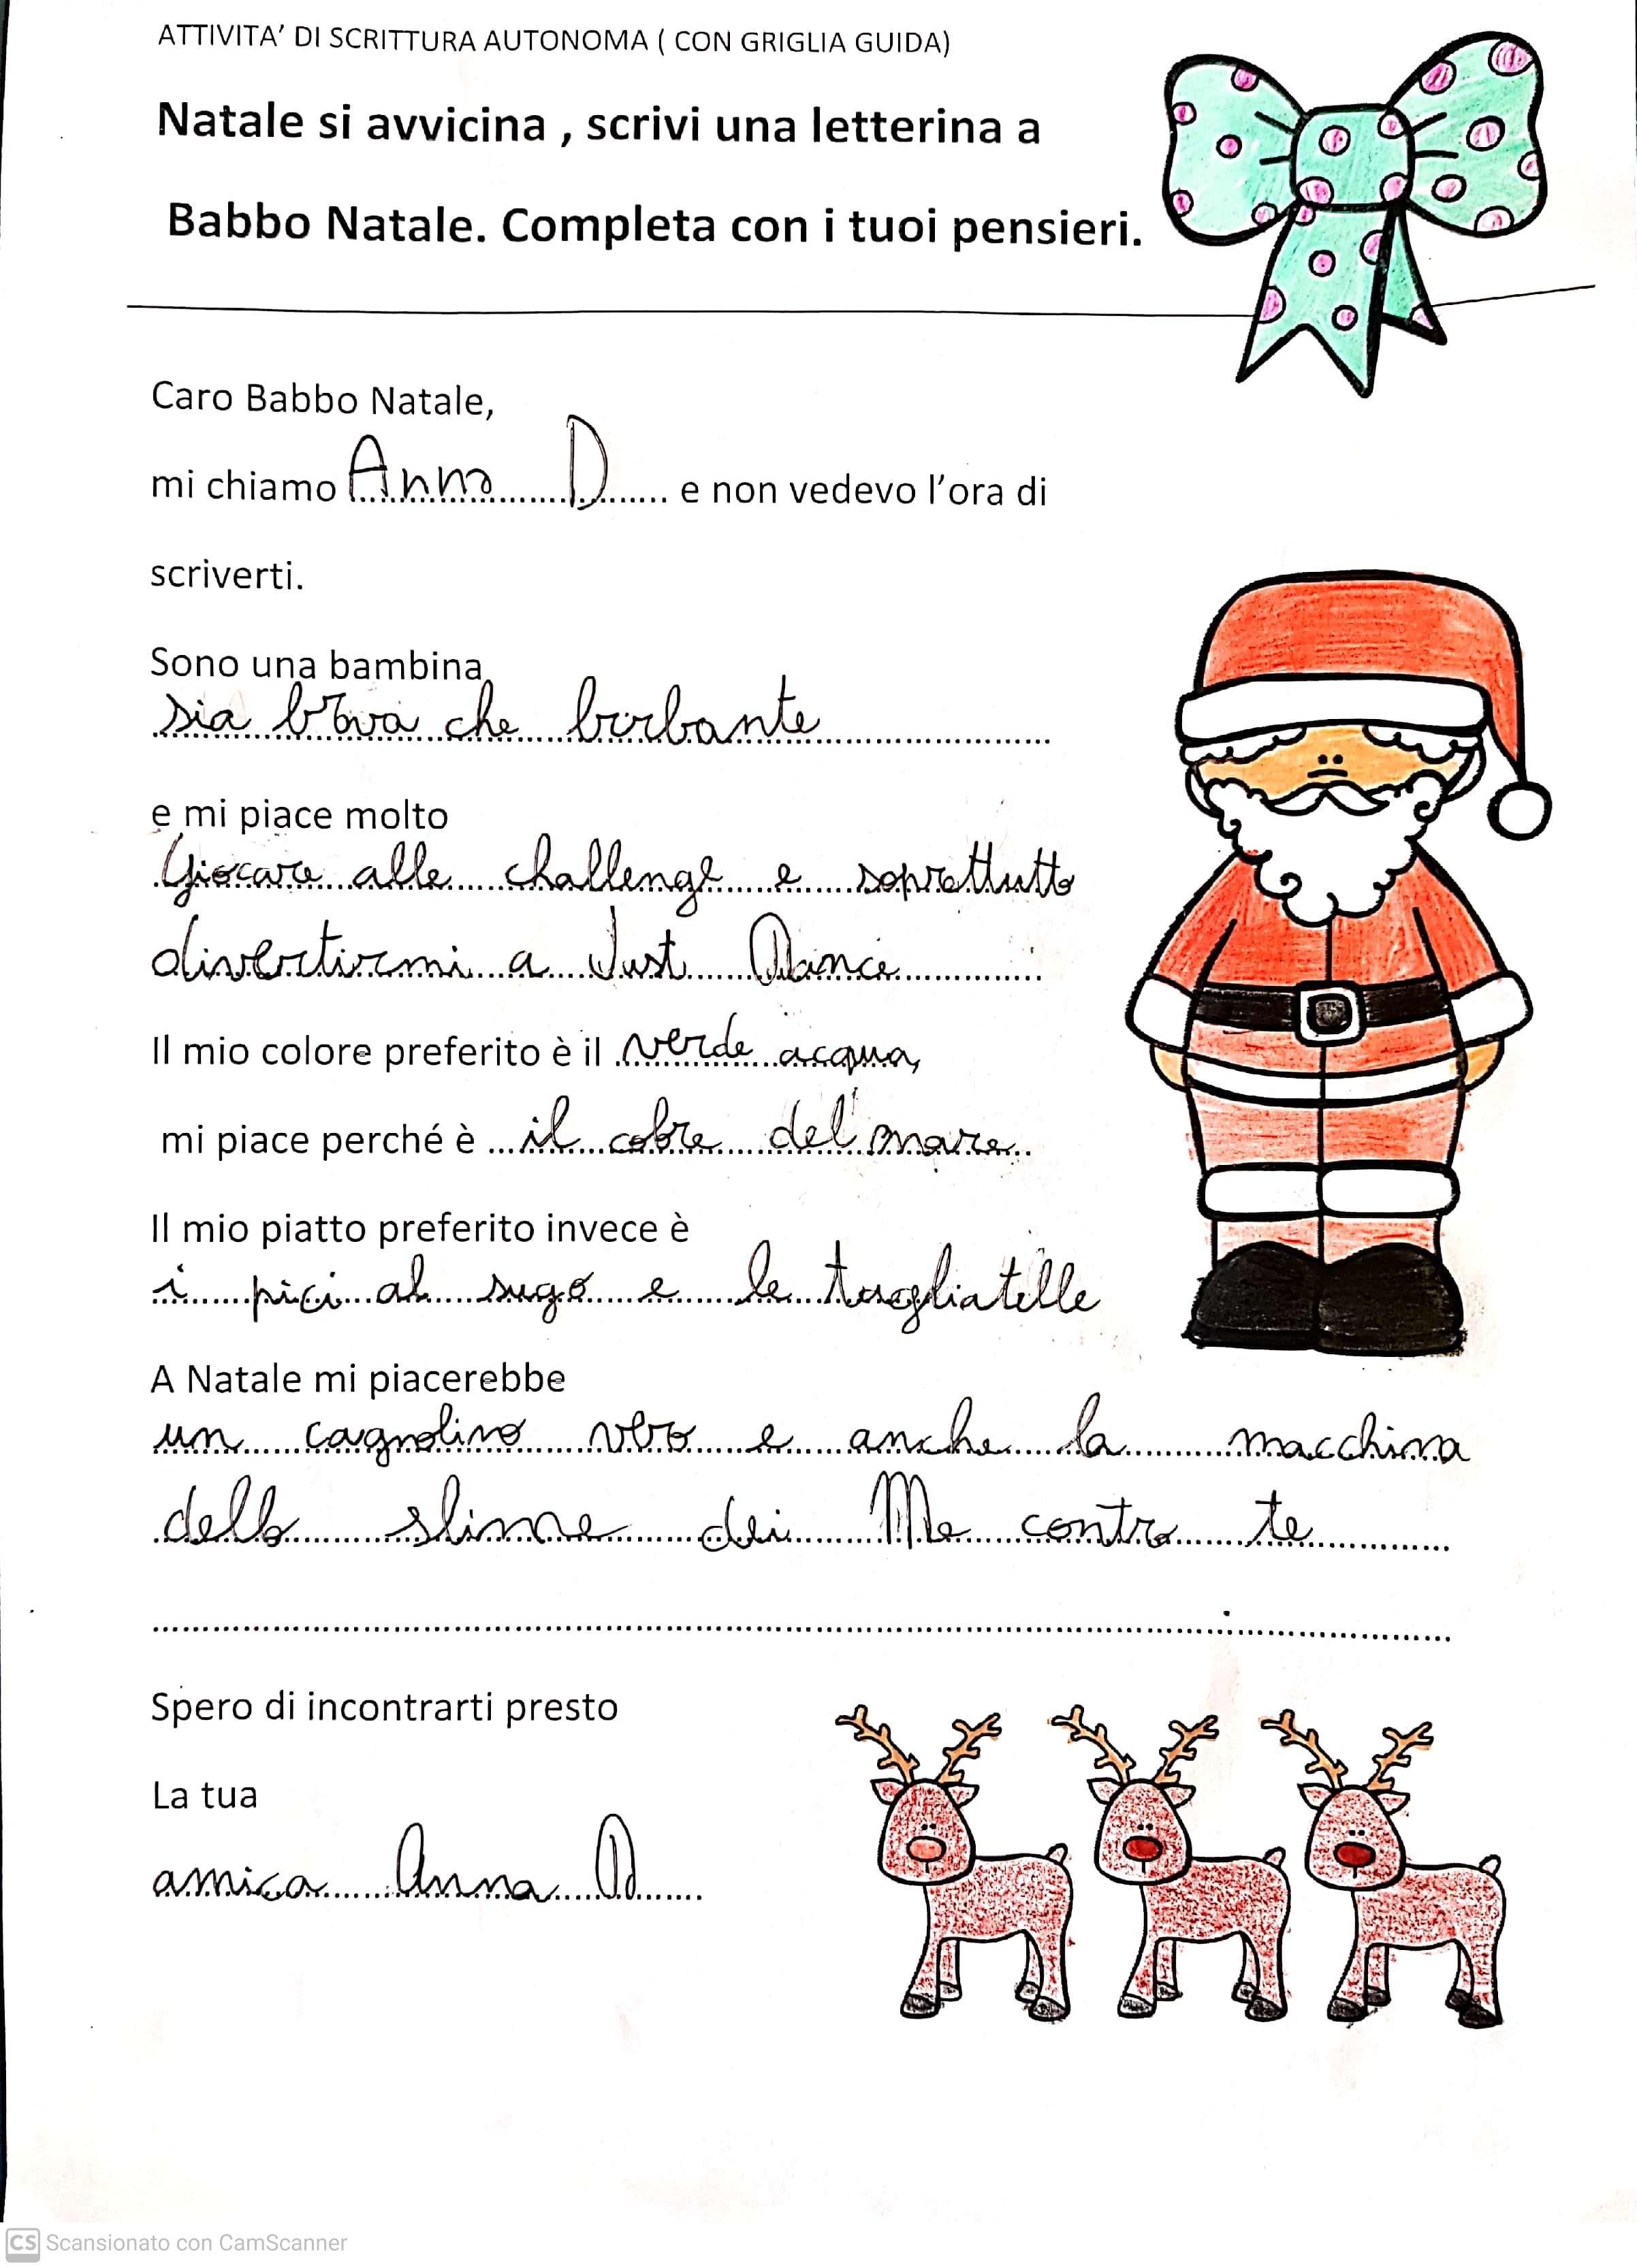 ATTIVITA' DI SCRITTURA AUTONOMA ( CON GRIGLIA GUIDA)
Natale si avvicina , scrivi una letterina a
Babbo Natale. Completa con i tuoi pensieri.
Caro Babbo Natale,
mi chiamo Anna D e non vedevo l'ora di
scriverti.
Sono una bambina
sia brava che birbante
e mi piace molto
Giocare alle challenge e soprattutto
divertirmi a Just Dance
Il mio colore preferito è il verde acqua,
mi piace perché è il colore del mare
Il mio piatto preferito invece è
i pici al sugo e le tagliatelle
A Natale mi piacerebbe
un cagnolino vero e anche la macchina
dello slime dei Me contro te
Spero di incontrarti presto
La tua
amica Anna D
CS Scansionato con CamScanner